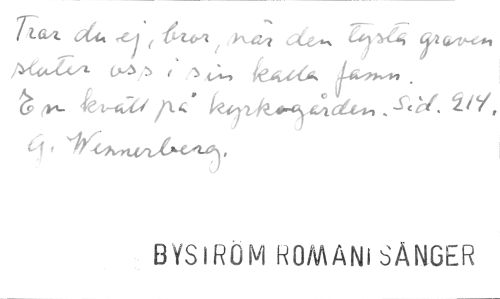 Trar du ej, bror, när den tysta graven
sluter oss i sin kalla famn.
En kväll på kyrkogården. Sid. 214.
G. Wennerberg.
BYSTRÖM ROMANI SÅNGER